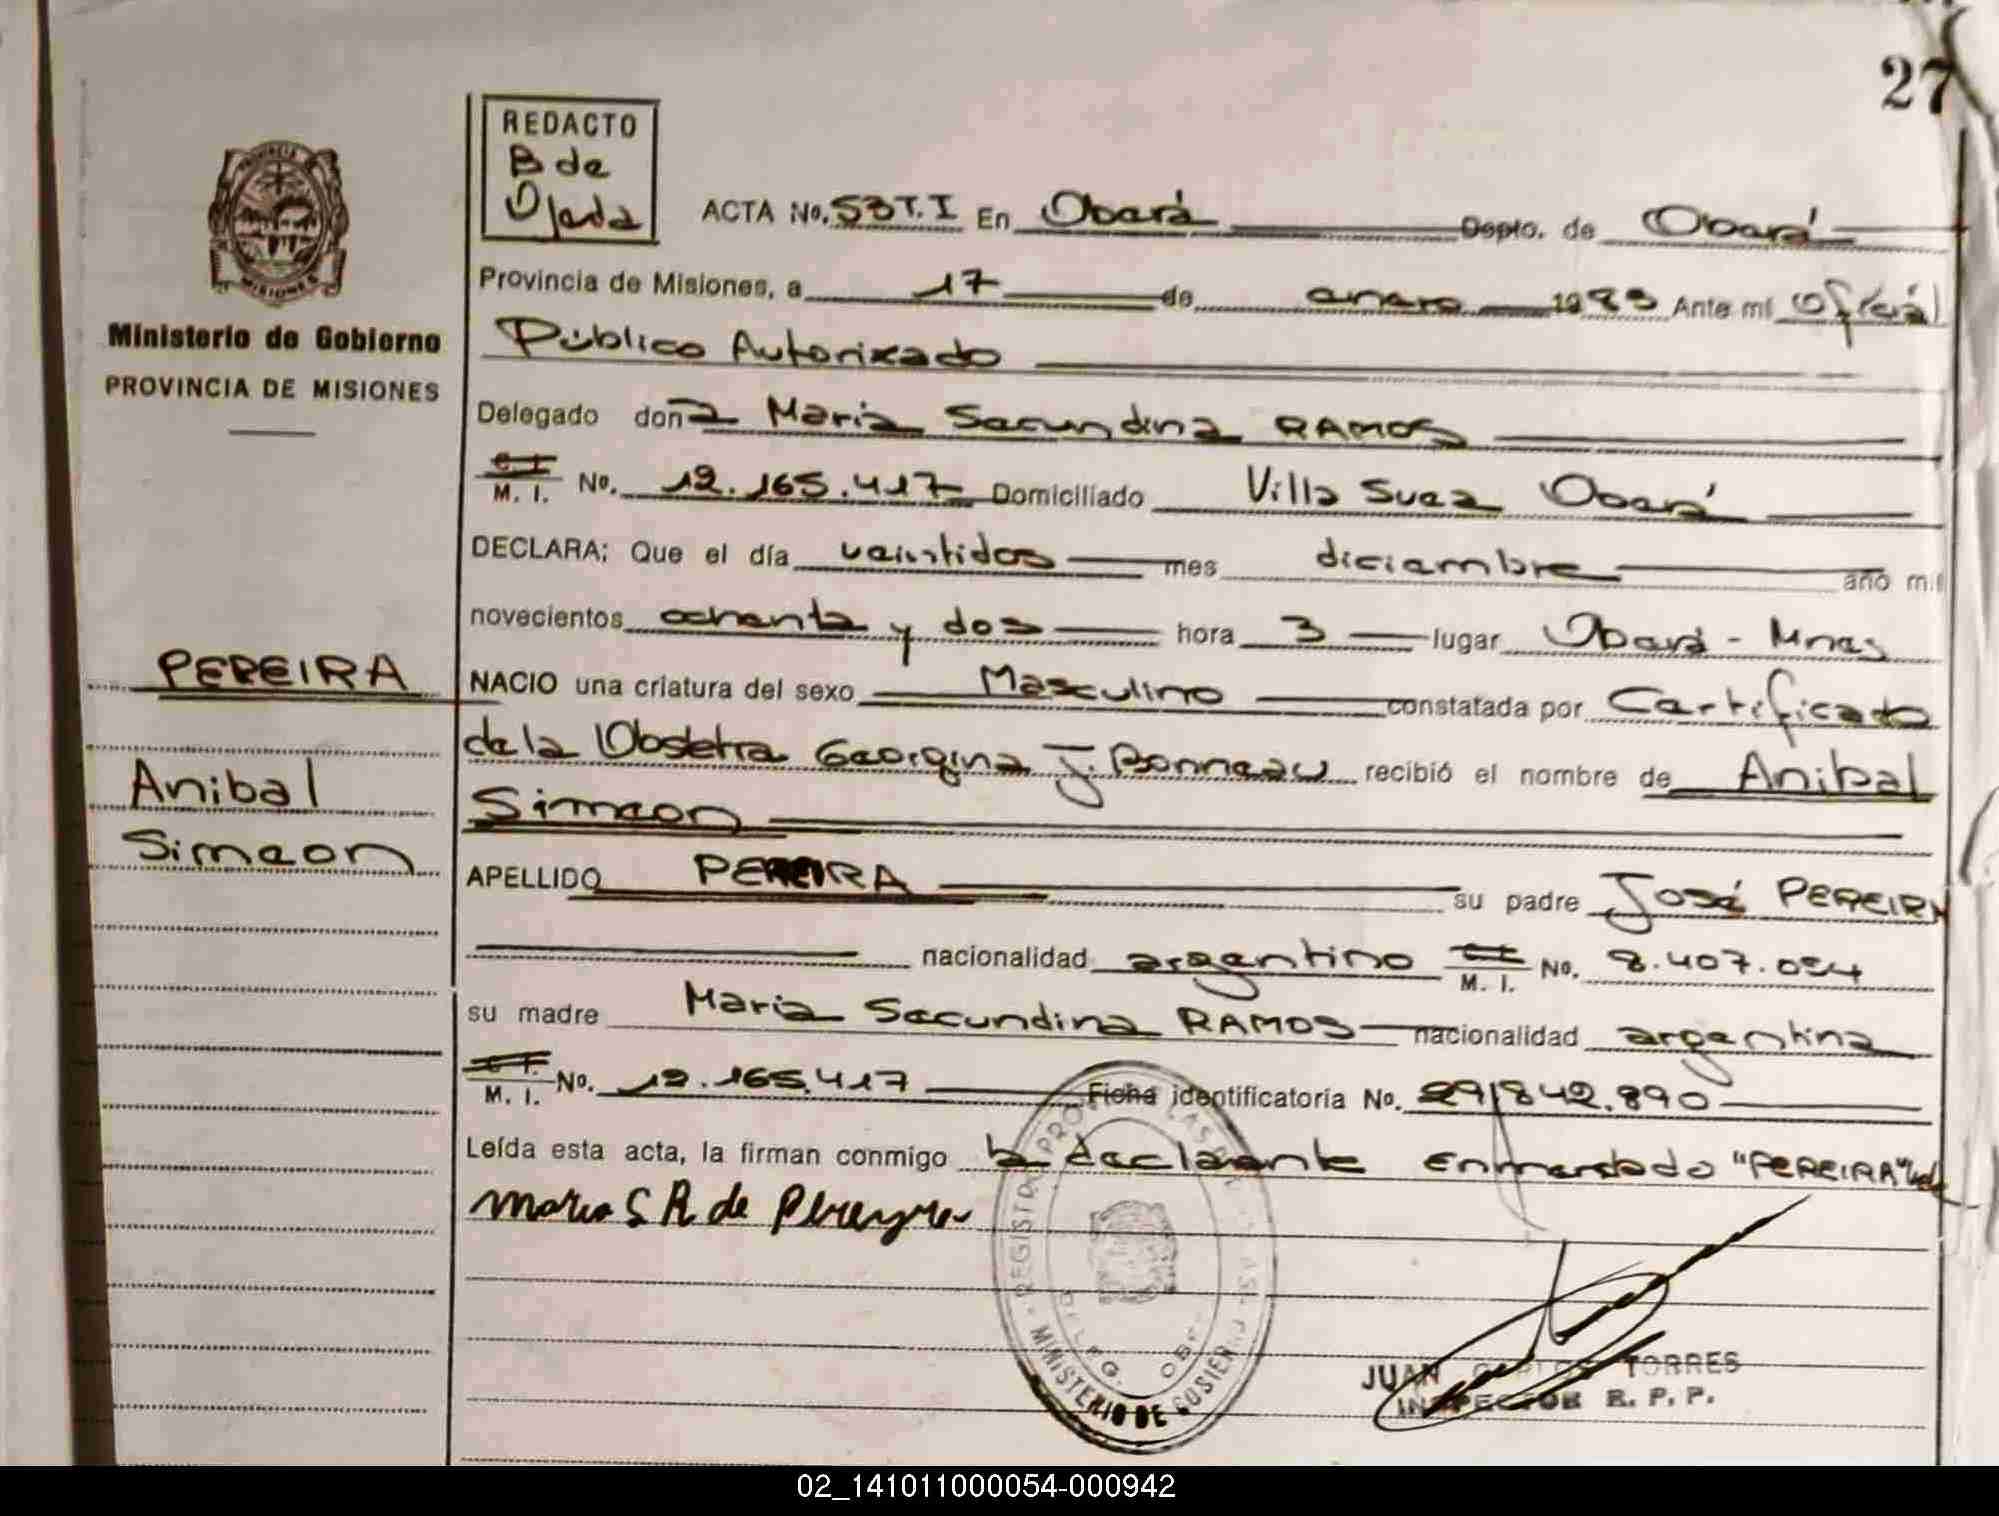 27
REDACTO
B de
Ojeda
ACTA No. 53 T.I En Oberá Depto. de Oberá
Provincia de Misiones, a 17 de enero 1983 Ante mí Oficial
Público Autorizado
Delegado dona Maria Secundina RAMOS
C I
M. I. No. 12.165.417 Domiciliado Villa Suez Oberá
DECLARA: Que el día veintidos mes diciembre año mil
novecientos ochenta y dos hora 3 lugar Oberá - Mnes
NACIO una criatura del sexo Masculino constatada por Certificado
de la Obstetra Georgina J. Bonneau recibió el nombre de Anibal
Simeon
APELLIDO PEREIRA su padre José PEREIRA
nacionalidad argentino C I M. I. No. 8.407.054
su madre Maria Secundina RAMOS nacionalidad argentina
C I.
M. I. No. 12.165.417 Ficha identificatoria No. 29.842.890
Leída esta acta, la firman conmigo la declarante Enmendado "PEREIRA" Vale
Maria S R de Pereyra
JUAN CARLOS TORRES
INSPECTOR R. P. P.
REGISTRO PRO
MINISTERIO DE GOBIER
DELEG. OBE
PROVINCIA
MISIONES
Ministerio de Gobierno
PROVINCIA DE MISIONES
PEREIRA
Anibal
Simeon
02_141011000054-000942